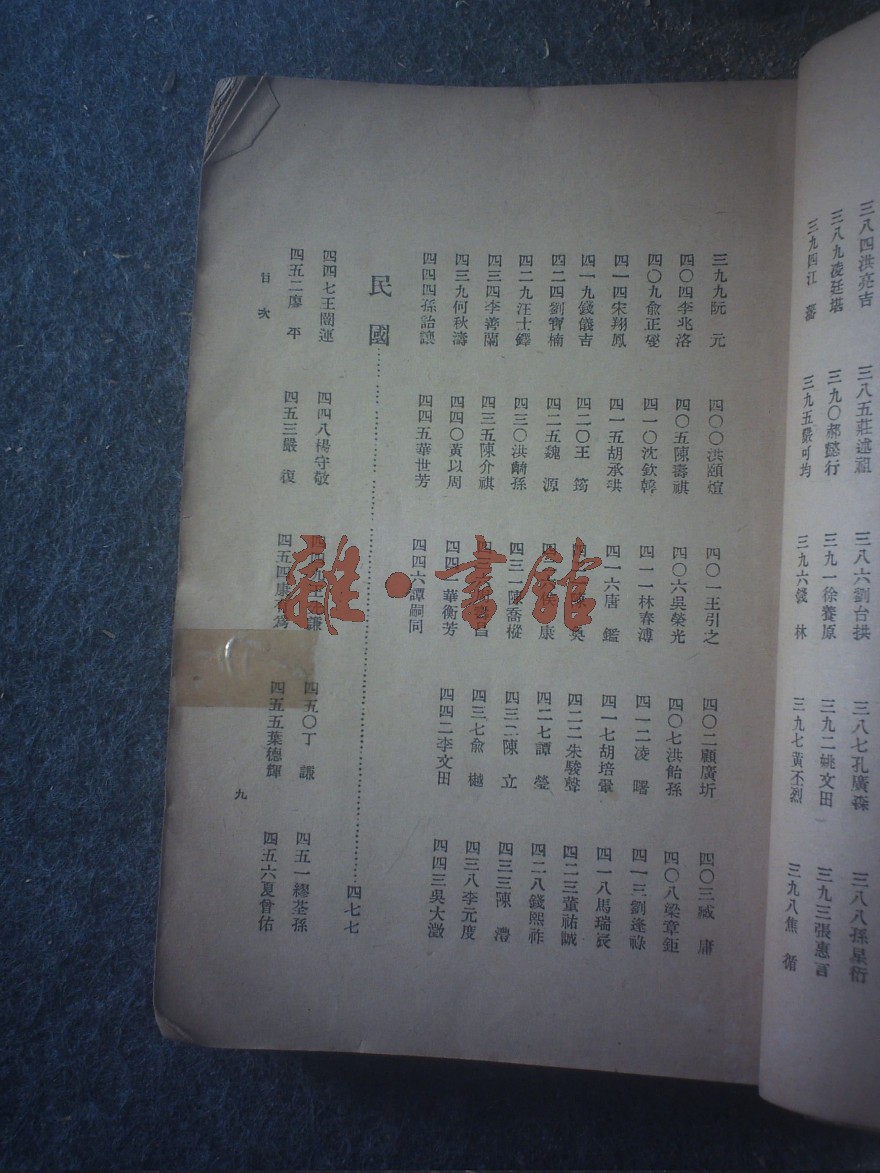 三八四洪亮吉　三八五莊述祖　三八六劉台拱　三八七孔廣森　三八八孫星衍
三八九凌廷堪　三九〇郝懿行　三九一徐養原　三九二姚文田　三九三張惠言
三九四江　藩　三九五嚴可均　三九六　林　三九七黃丕烈　三九八焦　循
三九九阮　元　四〇〇洪頤煊　四〇一王引之　四〇二顧廣圻　四〇三臧　庸
四〇四李兆洛　四〇五陳壽祺　四〇六吳榮光　四〇七洪飴孫　四〇八梁章鉅
四〇九俞正燮　四一〇沈欽韓　四一一林春溥　四一二凌　曙　四一三劉逢祿
四一四宋翔鳳　四一五胡承珙　四一六唐　鑑　四一七胡培翬　四一八馬瑞辰
四一九錢儀吉　四二〇王　筠　奐　四二二朱駿聲　四二三董祐誠
四二四劉寶楠　四二五魏　源　康　四二七譚　瑩　四二八錢熙祚
四二九汪士鐸　四三〇洪齮孫　四三一陳喬樅　四三二陳　立　四三三陳　澧
四三四李善蘭　四三五陳介祺　昌　四三七俞　樾　四三八李元度
四三九何秋濤　四四〇黃以周　四四一華衡芳　四四二李文田　四四三吳大澂
四四四孫詒讓　四四五華世芳　四四六譚嗣同
民　國……四七七
四四七王闓運　四四八楊守敬　謙　四五〇丁　謙　四五一繆荃孫
四五二廖　平　四五三嚴　復　四五四康　爲　四五五葉德輝　四五六夏曾佑
目　次
九
雜·書館